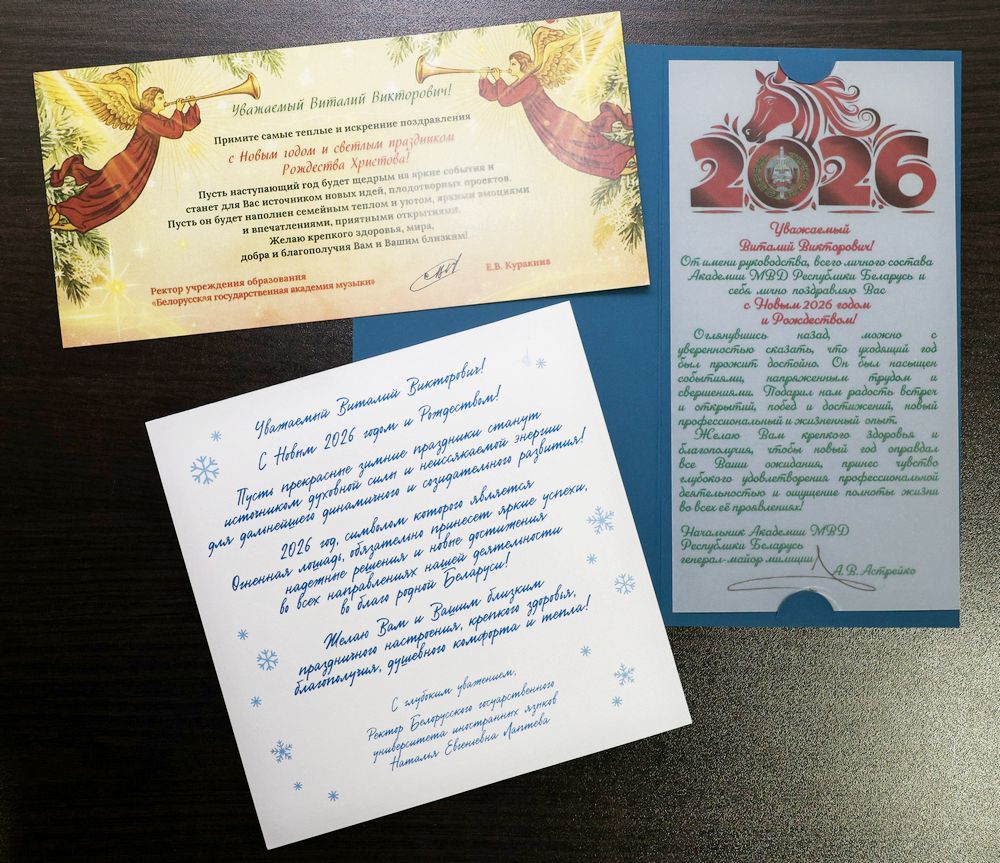 Уважаемый Виталий Викторович!
Примите самые теплые и искренние поздравления
с Новым годом и светлым праздником
Рождества Христова!
Пусть наступающий год будет щедрым на яркие события и
станет для Вас источником новых идей, плодотворных проектов.
Пусть он будет наполнен семейным теплом и уютом, яркими эмоциями
и впечатлениями, приятными открытиями.
Желаю крепкого здоровья, мира,
добра и благополучия Вам и Вашим близким!
Ректор учреждения образования
«Белорусская государственная академия музыки»
Е.В. Куракина
2026
Уважаемый
Виталий Викторович!
От имени руководства, всего личного состава
Академии МВД Республики Беларусь и
себя лично поздравляю Вас
с Новым 2026 годом
и Рождеством!
Оглянувшись назад, можно с
уверенностью сказать, что уходящий год
был прожит достойно. Он был насыщен
событиями, напряженным трудом и
свершениями. Подарил нам радость встреч
и открытий, побед и достижений, новый
профессиональный и жизненный опыт.
Желаю Вам крепкого здоровья и
благополучия, чтобы новый год оправдал
все Ваши ожидания, принес чувство
глубокого удовлетворения профессиональной
деятельностью и ощущение полноты жизни
во всех её проявлениях!
Начальник Академии МВД
Республики Беларусь
генерал-майор милиции
А.В. Астрейко
Уважаемый Виталий Викторович!
С Новым 2026 годом и Рождеством!
Пусть прекрасные зимние праздники станут
источником духовной силы и неиссякаемой энергии
для дальнейшего динамичного и созидательного развития!
2026 год, символом которого является
Огненная лошадь, обязательно принесет яркие успехи,
надежные решения и новые достижения
во всех направлениях нашей деятельности
во благо родной Беларуси!
Желаю Вам и Вашим близким
праздничного настроения, крепкого здоровья,
благополучия, душевного комфорта и тепла!
С глубоким уважением,
Ректор Белорусского государственного
университета иностранных языков
Наталья Евгеньевна Лаптева